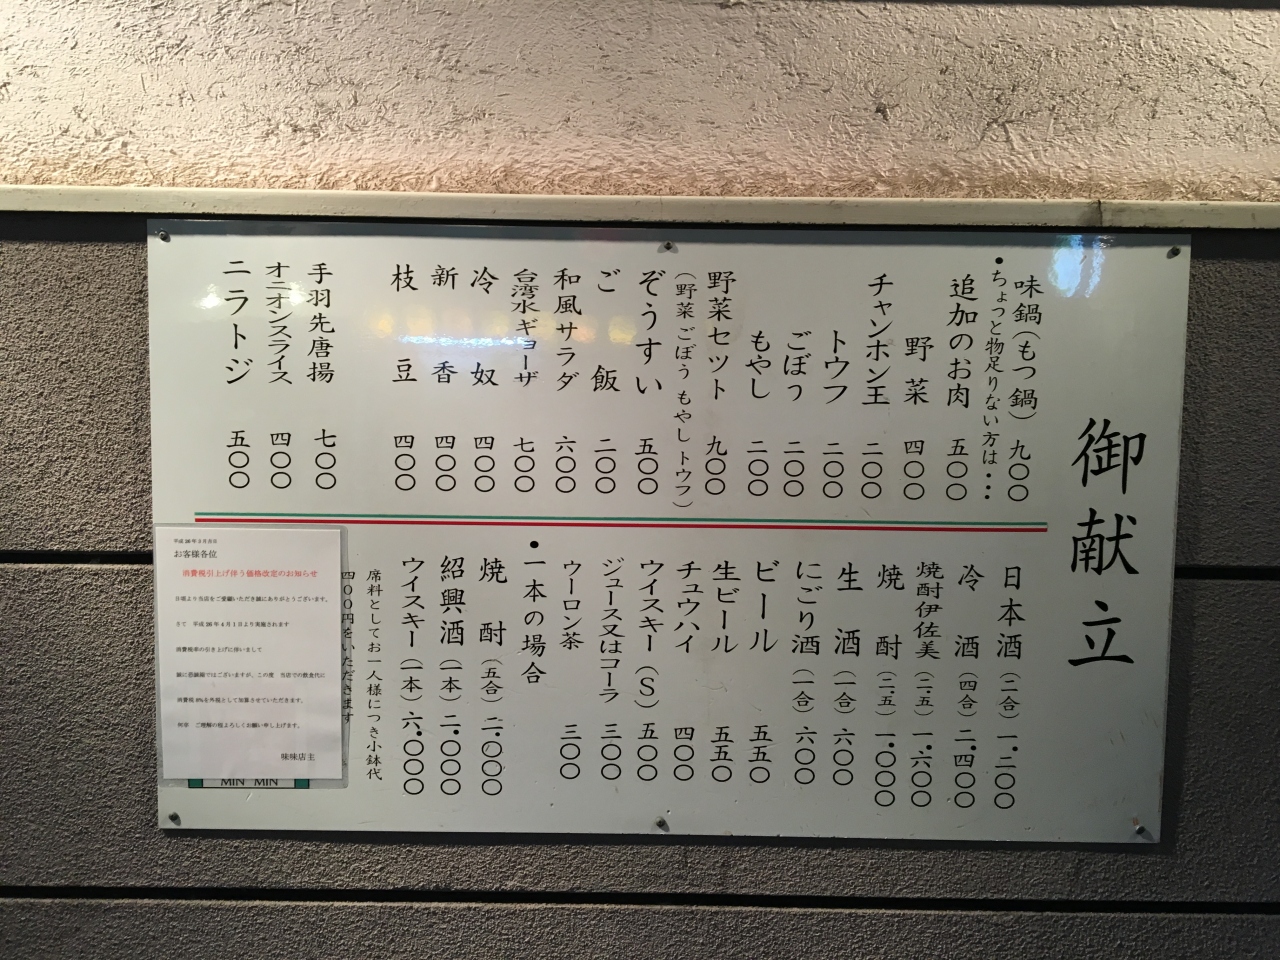 御献立
味鍋(もつ鍋) 九〇〇
・ちょっと物足りない方は・・・
追加のお肉 五〇〇
野菜 四〇〇
チャンホン王 二〇〇
トウフ 二〇〇
ごぼう 二〇〇
もやし 二〇〇
野菜セット 九〇〇
(野菜 ごぼう もやし トウフ)
ぞうすい 五〇〇
ご飯 二〇〇
和風サラダ 六〇〇
台湾水ギョーザ 七〇〇
冷奴 四〇〇
新香 四〇〇
枝豆 四〇〇
手羽先唐揚 七〇〇
オニオンスライス 四〇〇
ニラトジ 五〇〇
日本酒(二合) 一.二〇〇
冷酒(四合) 二.四〇〇
焼酎伊佐美(二.五) 一.六〇〇
焼酎(二.五) 一.〇〇〇
生酒(一合) 六〇〇
にごり酒(一合) 六〇〇
ビール 五五〇
生ビール 五五〇
チュウハイ 四〇〇
ウイスキー(S) 五〇〇
ジュース又はコーラ 三〇〇
ウーロン茶 三〇〇
・一本の場合
焼酎(五合) 二.〇〇〇
紹興酒(一本) 二.〇〇〇
ウイスキー(一本) 六.〇〇〇
席料としてお一人様につき小鉢代
四〇〇円をいただきます
平成26年3月吉日
お客様各位
消費税引上げ伴う価格改定のお知らせ
日頃より当店をご愛顧いただき誠にありがとうございます。
さて 平成26年4月1日より実施されます
消費税率の引き上げに伴いまして
誠に恐縮ではございますが、この度 当店での飲食代に
消費税8%を外税として加算させていただきます。
何卒 ご理解の程よろしくお願い申し上げます。
味味店主
MIN MIN